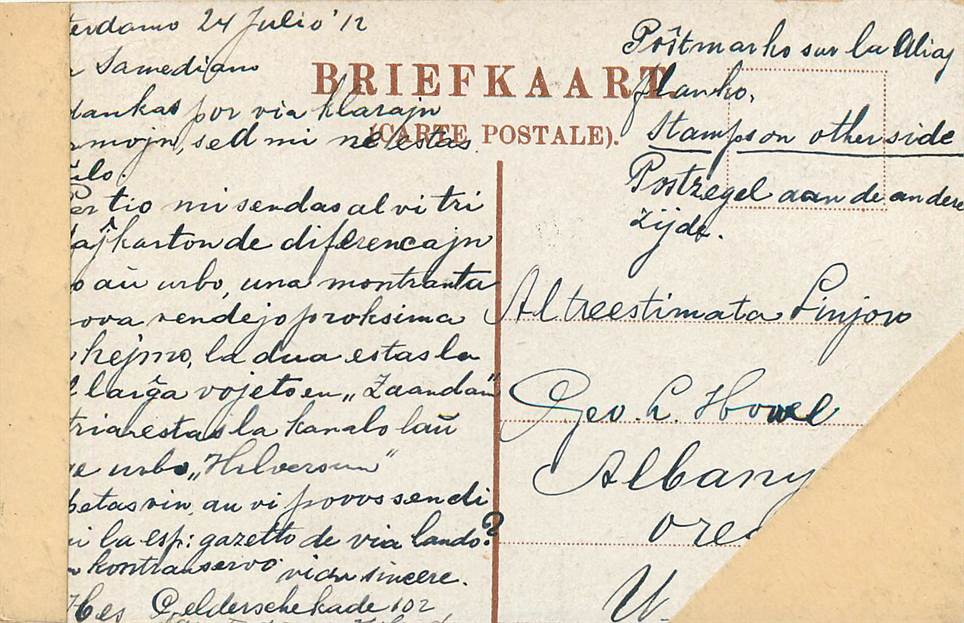 terdamo 24 Julio '12
r Samediano
dankas por via klarajn
rmojn, sed mi ne estas
ŭlo.
Per tio mi sendas al vi tri
aĵkarton de diferencajn
o aŭ urbo, una montranta
ova vendejo proksima
hejmo, la dua estas la
l larĝa vojeto en "Zaandan"
tria estas la kanalo laŭ
e urbo "Hilversum"
petas vin, aŭ vi povos sendi
i la esp: gazetto de via lando?
kontraŭservo via sincere.
Hes Gelderschekade 102
BRIEFKAART
(CARTE POSTALE).
Postmarko sur la Aliaj
flanko.
Stamps on otherside
Postzegel aan de andere
zijde.
Al treestimata Sinjoro
Geo. L. Howel
Albany
Ore
U.